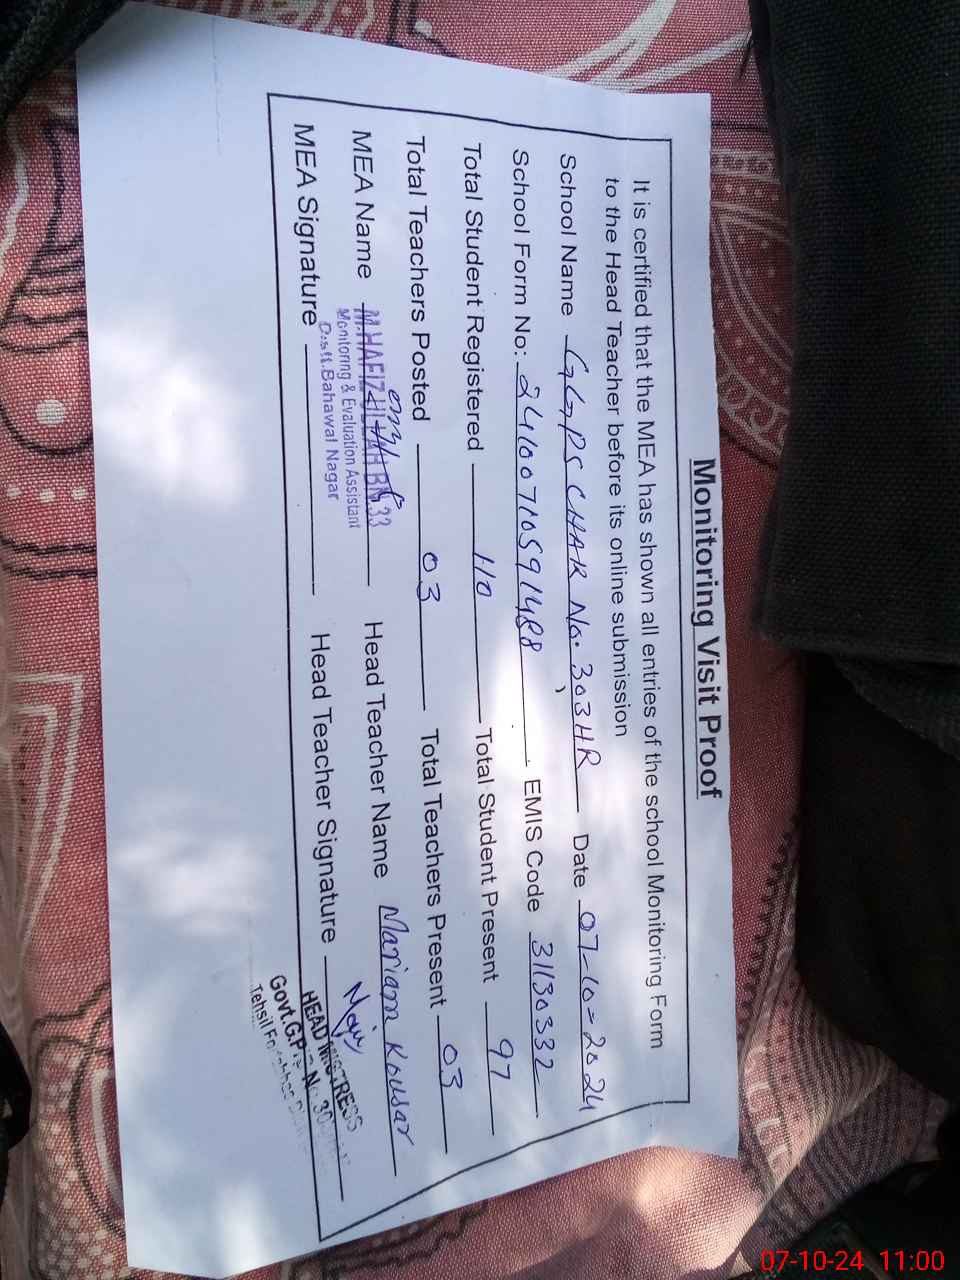 Monitoring Visit Proof
It is certified that the MEA has shown all entries of the school Monitoring Form
to the Head Teacher before its online submission
School Name GGPS CHAK No. 303HR Date 07-10-2024
School Form No: 24100710591488 EMIS Code 31130332
Total Student Registered 110 Total Student Present 97
Total Teachers Posted 03 Total Teachers Present 03
MEA Name M.HAFIZ ULLAH BN.33 Head Teacher Name Mariam Kousar
Monitoring & Evaluation Assistant
Distt.Bahawal Nagar
MEA Signature Head Teacher Signature
HEAD MISTRESS
Govt.G.P.S No. 303
Tehsil
07-10-24 11:00